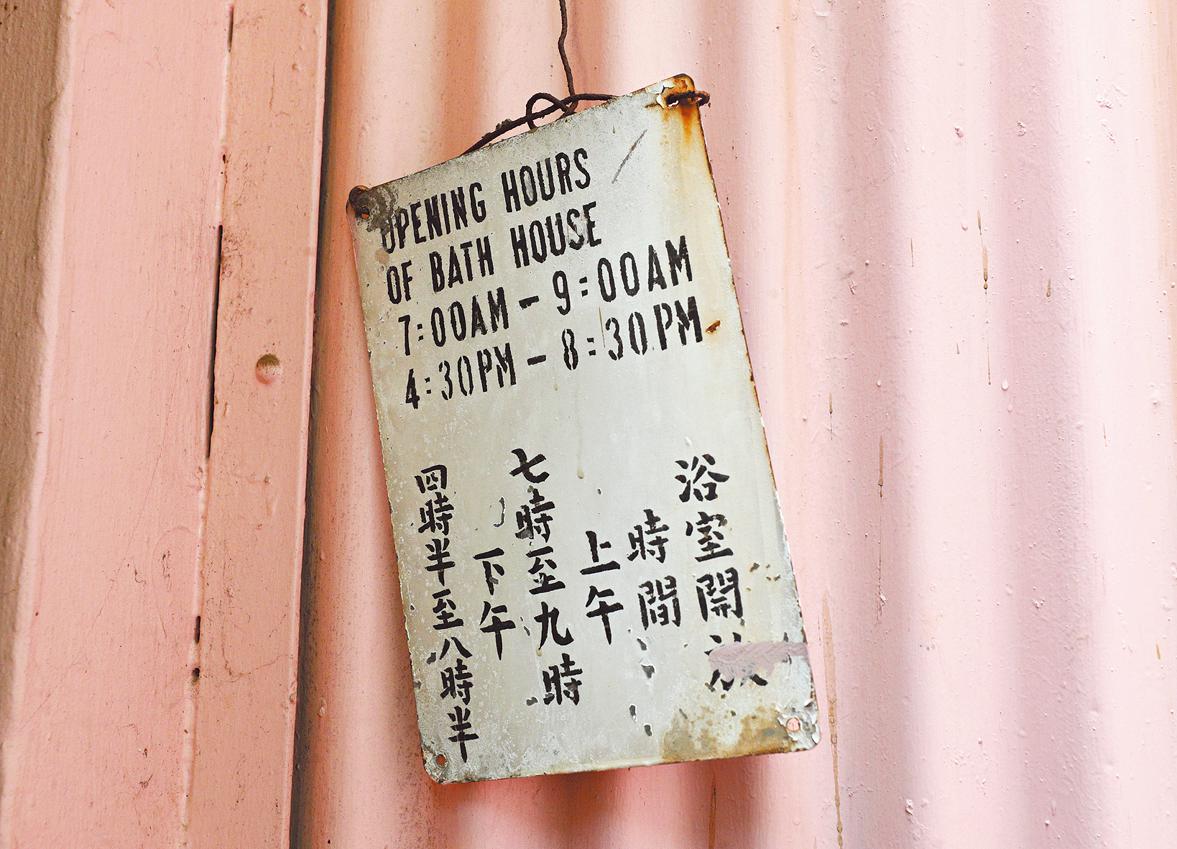 OPENING HOURS
OF BATH HOUSE
7:00AM - 9:00AM
4:30PM - 8:30PM
浴室開放
時間
上午
七時至九時
下午
四時半至八時半